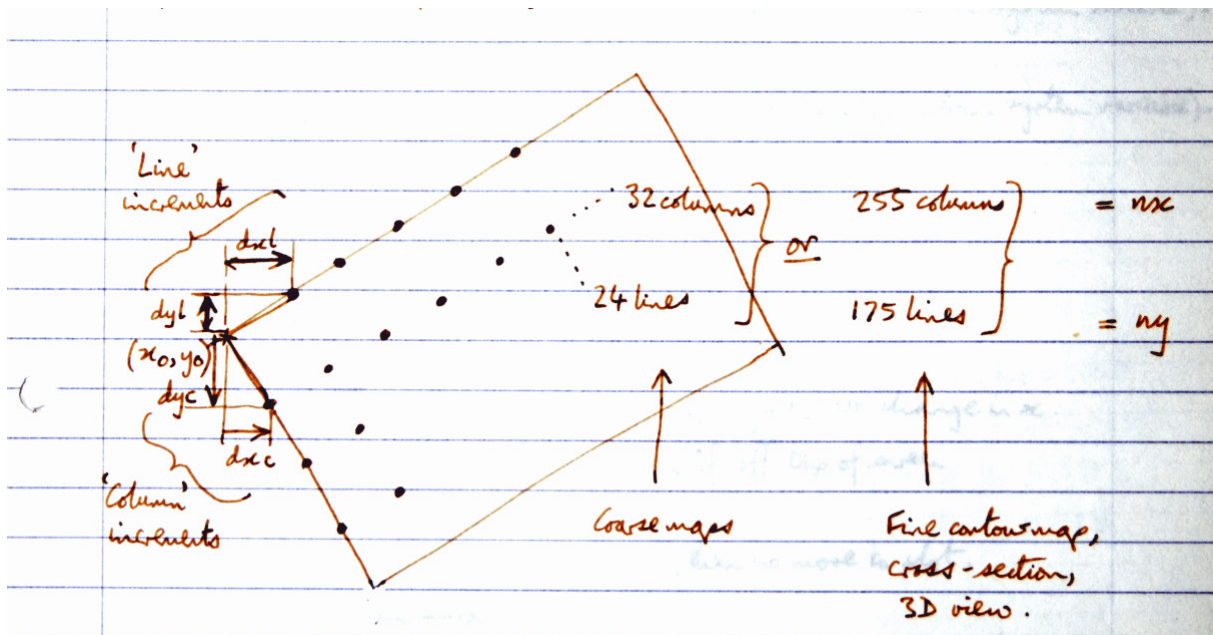 'Line'
increments
dxl
dyl
(x0, y0)
dyc
dxc
'Column'
increments
32 columns
24 lines
or
255 columns
175 lines
= nx
= ny
Coarse maps
Fine contour map,
cross-section,
3D view.